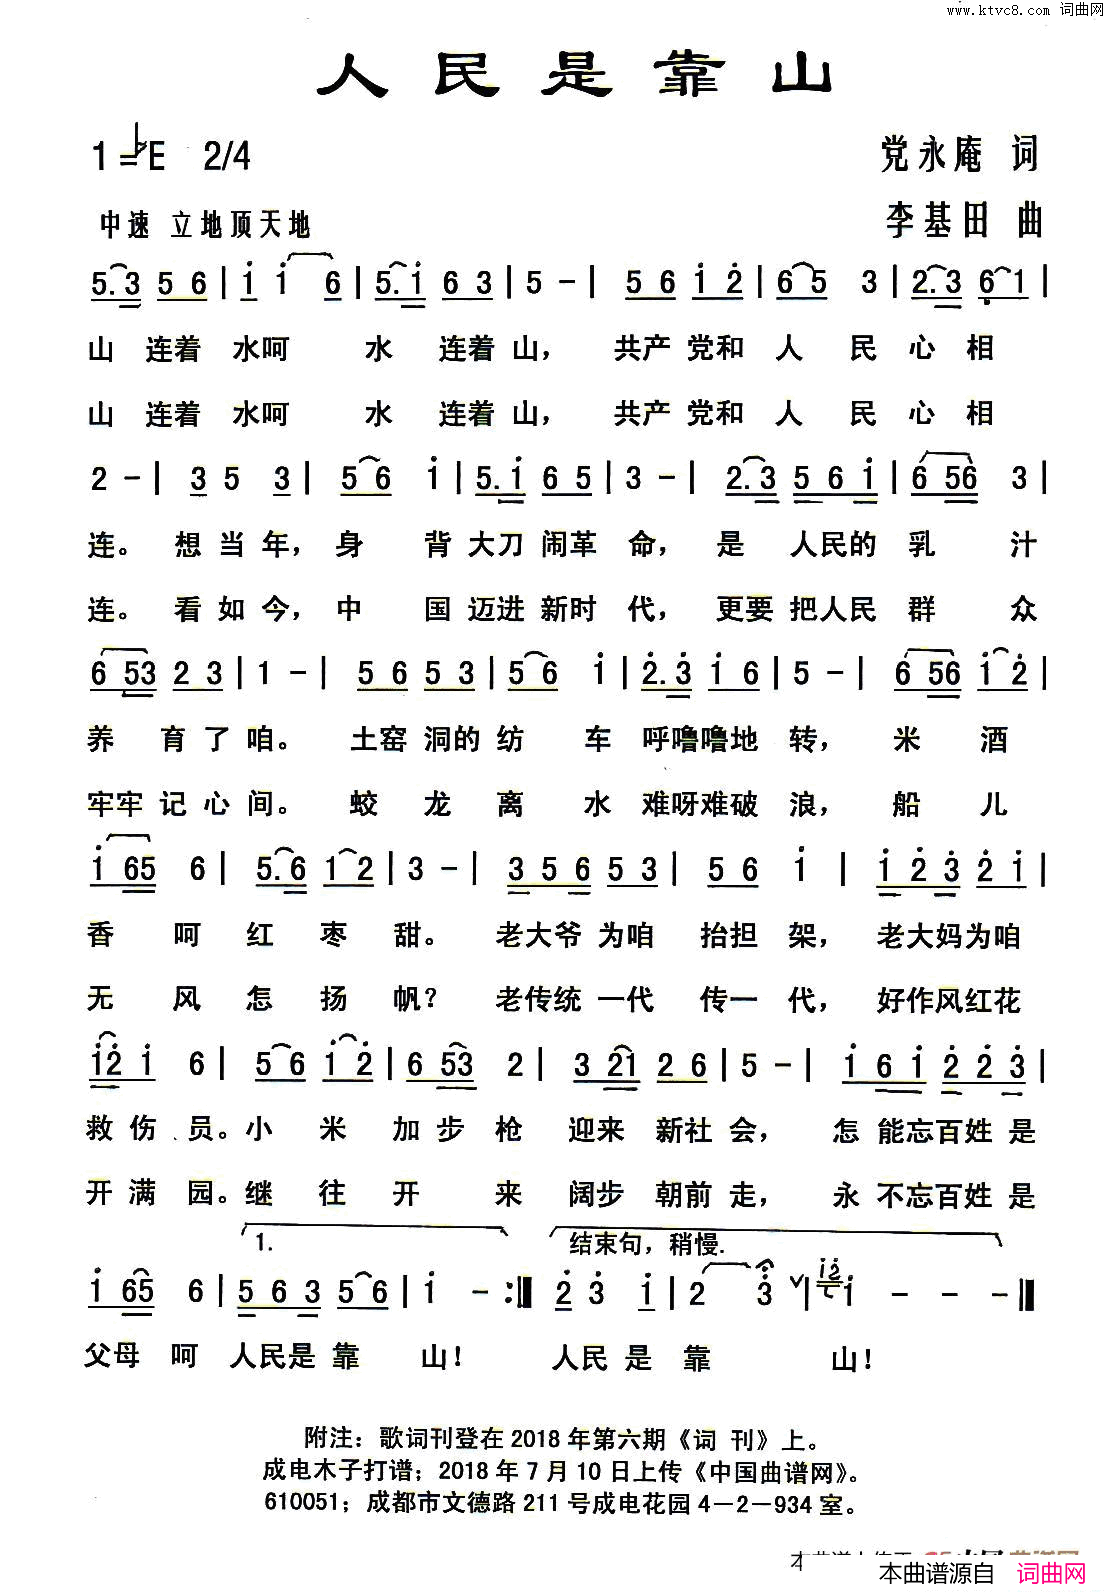 www.ktvc8.com 词曲网
人民是靠山
1=♭E 2/4 党永庵 词
中速 立地顶天地 李基田 曲
5.3 5 6 | i i 6 | 5.i 6 3 | 5 - | 5 6 i 2 | 6 5 3 | 2.3 6 1 |
山 连着 水呵 水 连着山， 共产党和 人 民 心 相
山 连着 水呵 水 连着山， 共产党和 人 民 心 相
2 - | 3 5 3 | 5 6 i | 5.i 6 5 | 3 - | 2.3 5 6 i | 6 56 3 |
连。 想当年， 身 背大刀闹革 命， 是 人民的 乳 汁
连。 看如今， 中 国迈进新时 代， 更要把人民 群 众
6 53 2 3 | 1 - | 5 6 5 3 | 5 6 i | 2.3 i 6 | 5 - | 6 56 i 2 |
养 育了咱。 土窑洞的纺 车 呼噜噜地 转， 米 酒
牢牢记心间。 蛟龙离 水 难呀难破浪， 船 儿
i 65 6 | 5.6 1 2 | 3 - | 3 5 6 5 3 | 5 6 i | i 2 3 2 i |
香 呵 红 枣 甜。 老大爷为咱 抬担 架， 老大妈为咱
无 风 怎 扬 帆？ 老传统一代 传一 代， 好作风红花
i2 i 6 | 5 6 i 2 | 6 53 2 | 3 21 2 6 | 5 - | i 6 i 2 2 3 |
救伤 员。小 米 加步枪 迎来 新社会， 怎 能忘百姓是
开满 园。继 往 开 来 阔步 朝前走， 永 不忘百姓是
1. 结束句，稍慢.
i 65 6 | 5 6 3 5 6 | i - :‖ 2 3 i | 2 3 ∨ | i2 i - - - ‖
父母 呵 人民是靠 山！ 人民是 靠 山！
附注：歌词刊登在2018年第六期《词 刊》上。
成电木子打谱；2018年7月10日上传《中国曲谱网》。
610051；成都市文德路211号成电花园4－2－934室。
本曲谱源自 词曲网